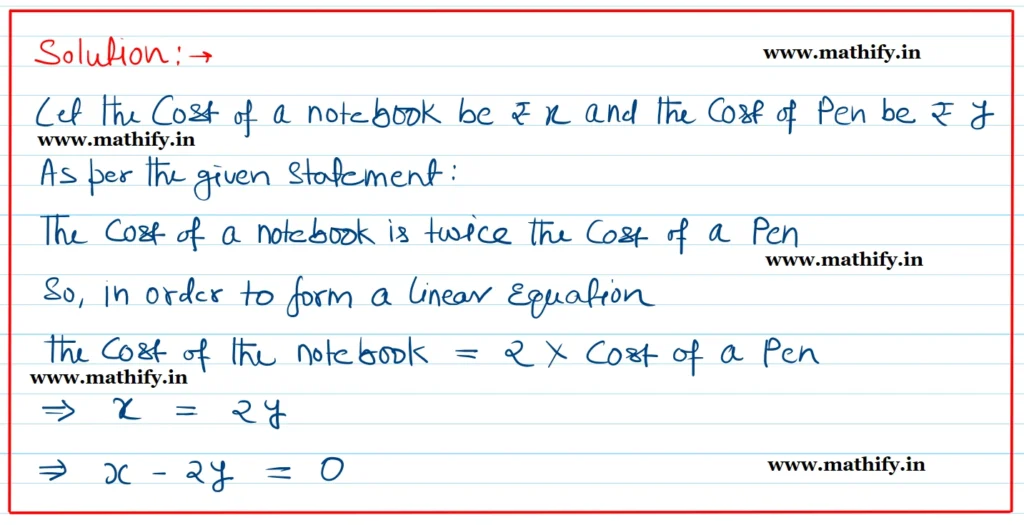 Solution:→
www.mathify.in
Let the Cost of a notebook be ₹ x and the Cost of Pen be ₹ y
www.mathify.in
As per the given Statement:
The Cost of a notebook is twice the Cost of a Pen
www.mathify.in
So, in order to form a linear Equation
the Cost of the notebook = 2 × Cost of a Pen
www.mathify.in
⇒ x = 2y
⇒ x - 2y = 0
www.mathify.in